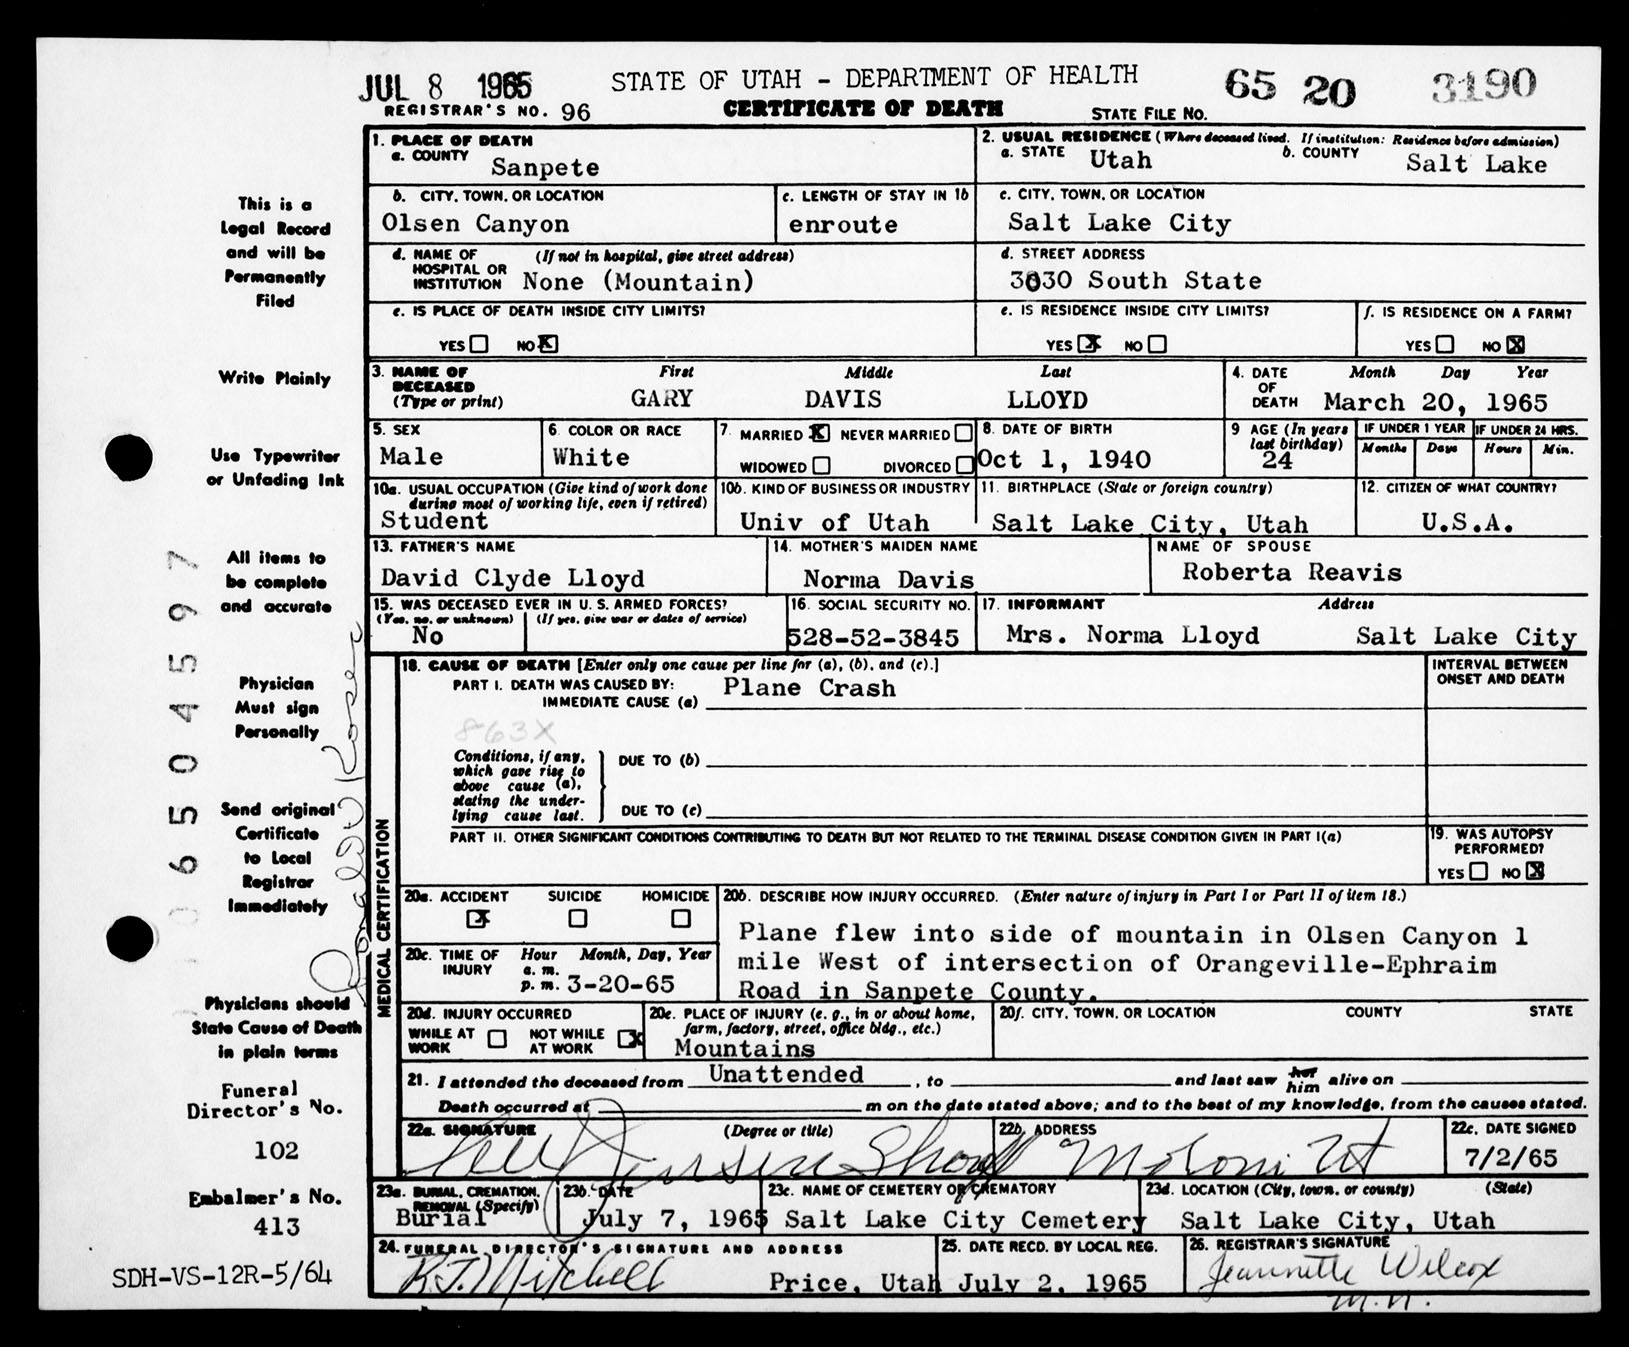 JUL 8 1965 STATE OF UTAH - DEPARTMENT OF HEALTH 65 20 3190
REGISTRAR'S NO. 96 CERTIFICATE OF DEATH STATE FILE NO.
1. PLACE OF DEATH
a. COUNTY Sanpete
2. USUAL RESIDENCE (Where deceased lived. If institution: Residence before admission)
a. STATE Utah b. COUNTY Salt Lake
b. CITY, TOWN, OR LOCATION
Olsen Canyon
c. LENGTH OF STAY IN 1b
enroute
c. CITY, TOWN, OR LOCATION
Salt Lake City
d. NAME OF (If not in hospital, give street address)
HOSPITAL OR
INSTITUTION None (Mountain)
d. STREET ADDRESS
3030 South State
e. IS PLACE OF DEATH INSIDE CITY LIMITS?
YES NO X
e. IS RESIDENCE INSIDE CITY LIMITS?
YES X NO
f. IS RESIDENCE ON A FARM?
YES NO X
3. NAME OF First Middle Last
DECEASED
(Type or print) GARY DAVIS LLOYD
4. DATE Month Day Year
OF
DEATH March 20, 1965
5. SEX
Male
6 COLOR OR RACE
White
7. MARRIED X NEVER MARRIED
WIDOWED DIVORCED
8. DATE OF BIRTH
Oct 1, 1940
9 AGE (In years
last birthday)
24
IF UNDER 1 YEAR
Months Days
IF UNDER 24 HRS.
Hours Min.
10a. USUAL OCCUPATION (Give kind of work done
during most of working life, even if retired)
Student
10b. KIND OF BUSINESS OR INDUSTRY
Univ of Utah
11. BIRTHPLACE (State or foreign country)
Salt Lake City, Utah
12. CITIZEN OF WHAT COUNTRY?
U.S.A.
13. FATHER'S NAME
David Clyde Lloyd
14. MOTHER'S MAIDEN NAME
Norma Davis
NAME OF SPOUSE
Roberta Reavis
15. WAS DECEASED EVER IN U. S. ARMED FORCES?
(Yes, no, or unknown) (If yes, give war or dates of service)
No
16. SOCIAL SECURITY NO.
528-52-3845
17. INFORMANT Address
Mrs. Norma Lloyd Salt Lake City
MEDICAL CERTIFICATION
18. CAUSE OF DEATH [Enter only one cause per line for (a), (b), and (c).]
PART I. DEATH WAS CAUSED BY: Plane Crash
IMMEDIATE CAUSE (a)
863X
Conditions, if any,
which gave rise to
above cause (a),
stating the under-
lying cause last.
DUE TO (b)
DUE TO (c)
INTERVAL BETWEEN
ONSET AND DEATH
PART II. OTHER SIGNIFICANT CONDITIONS CONTRIBUTING TO DEATH BUT NOT RELATED TO THE TERMINAL DISEASE CONDITION GIVEN IN PART I(a)
19. WAS AUTOPSY
PERFORMED?
YES NO X
20a. ACCIDENT SUICIDE HOMICIDE
X
20b. DESCRIBE HOW INJURY OCCURRED. (Enter nature of injury in Part I or Part II of item 18.)
Plane flew into side of mountain in Olsen Canyon 1
mile West of intersection of Orangeville-Ephraim
Road in Sanpete County.
20c. TIME OF Hour Month, Day, Year
INJURY a. m.
p. m. 3-20-65
20d. INJURY OCCURRED
WHILE AT NOT WHILE
WORK AT WORK X
20e. PLACE OF INJURY (e. g., in or about home,
farm, factory, street, office bldg., etc.)
Mountains
20f. CITY, TOWN, OR LOCATION COUNTY STATE
21. I attended the deceased from Unattended, to and last saw her him alive on
Death occurred at m on the date stated above; and to the best of my knowledge, from the causes stated.
22a. SIGNATURE (Degree or title)
Jensen
22b. ADDRESS
Moroni Ut
22c. DATE SIGNED
7/2/65
23a. BURIAL, CREMATION,
REMOVAL (Specify)
Burial
23b. DATE
July 7, 1965
23c. NAME OF CEMETERY OR CREMATORY
Salt Lake City Cemetery
23d. LOCATION (City, town, or county) (State)
Salt Lake City, Utah
24. FUNERAL DIRECTOR'S SIGNATURE AND ADDRESS
R.J. Mitchell Price, Utah
25. DATE RECD. BY LOCAL REG.
July 2, 1965
26. REGISTRAR'S SIGNATURE
Jeannette Wilcox
This is a
Legal Record
and will be
Permanently
Filed
Write Plainly
Use Typewriter
or Unfading Ink
All items to
be complete
and accurate
Physician
Must sign
Personally
Send original
Certificate
to Local
Registrar
Immediately
Physicians should
State Cause of Death
in plain terms
Funeral
Director's No.
102
Embalmer's No.
413
SDH-VS-12R-5/64
06504597